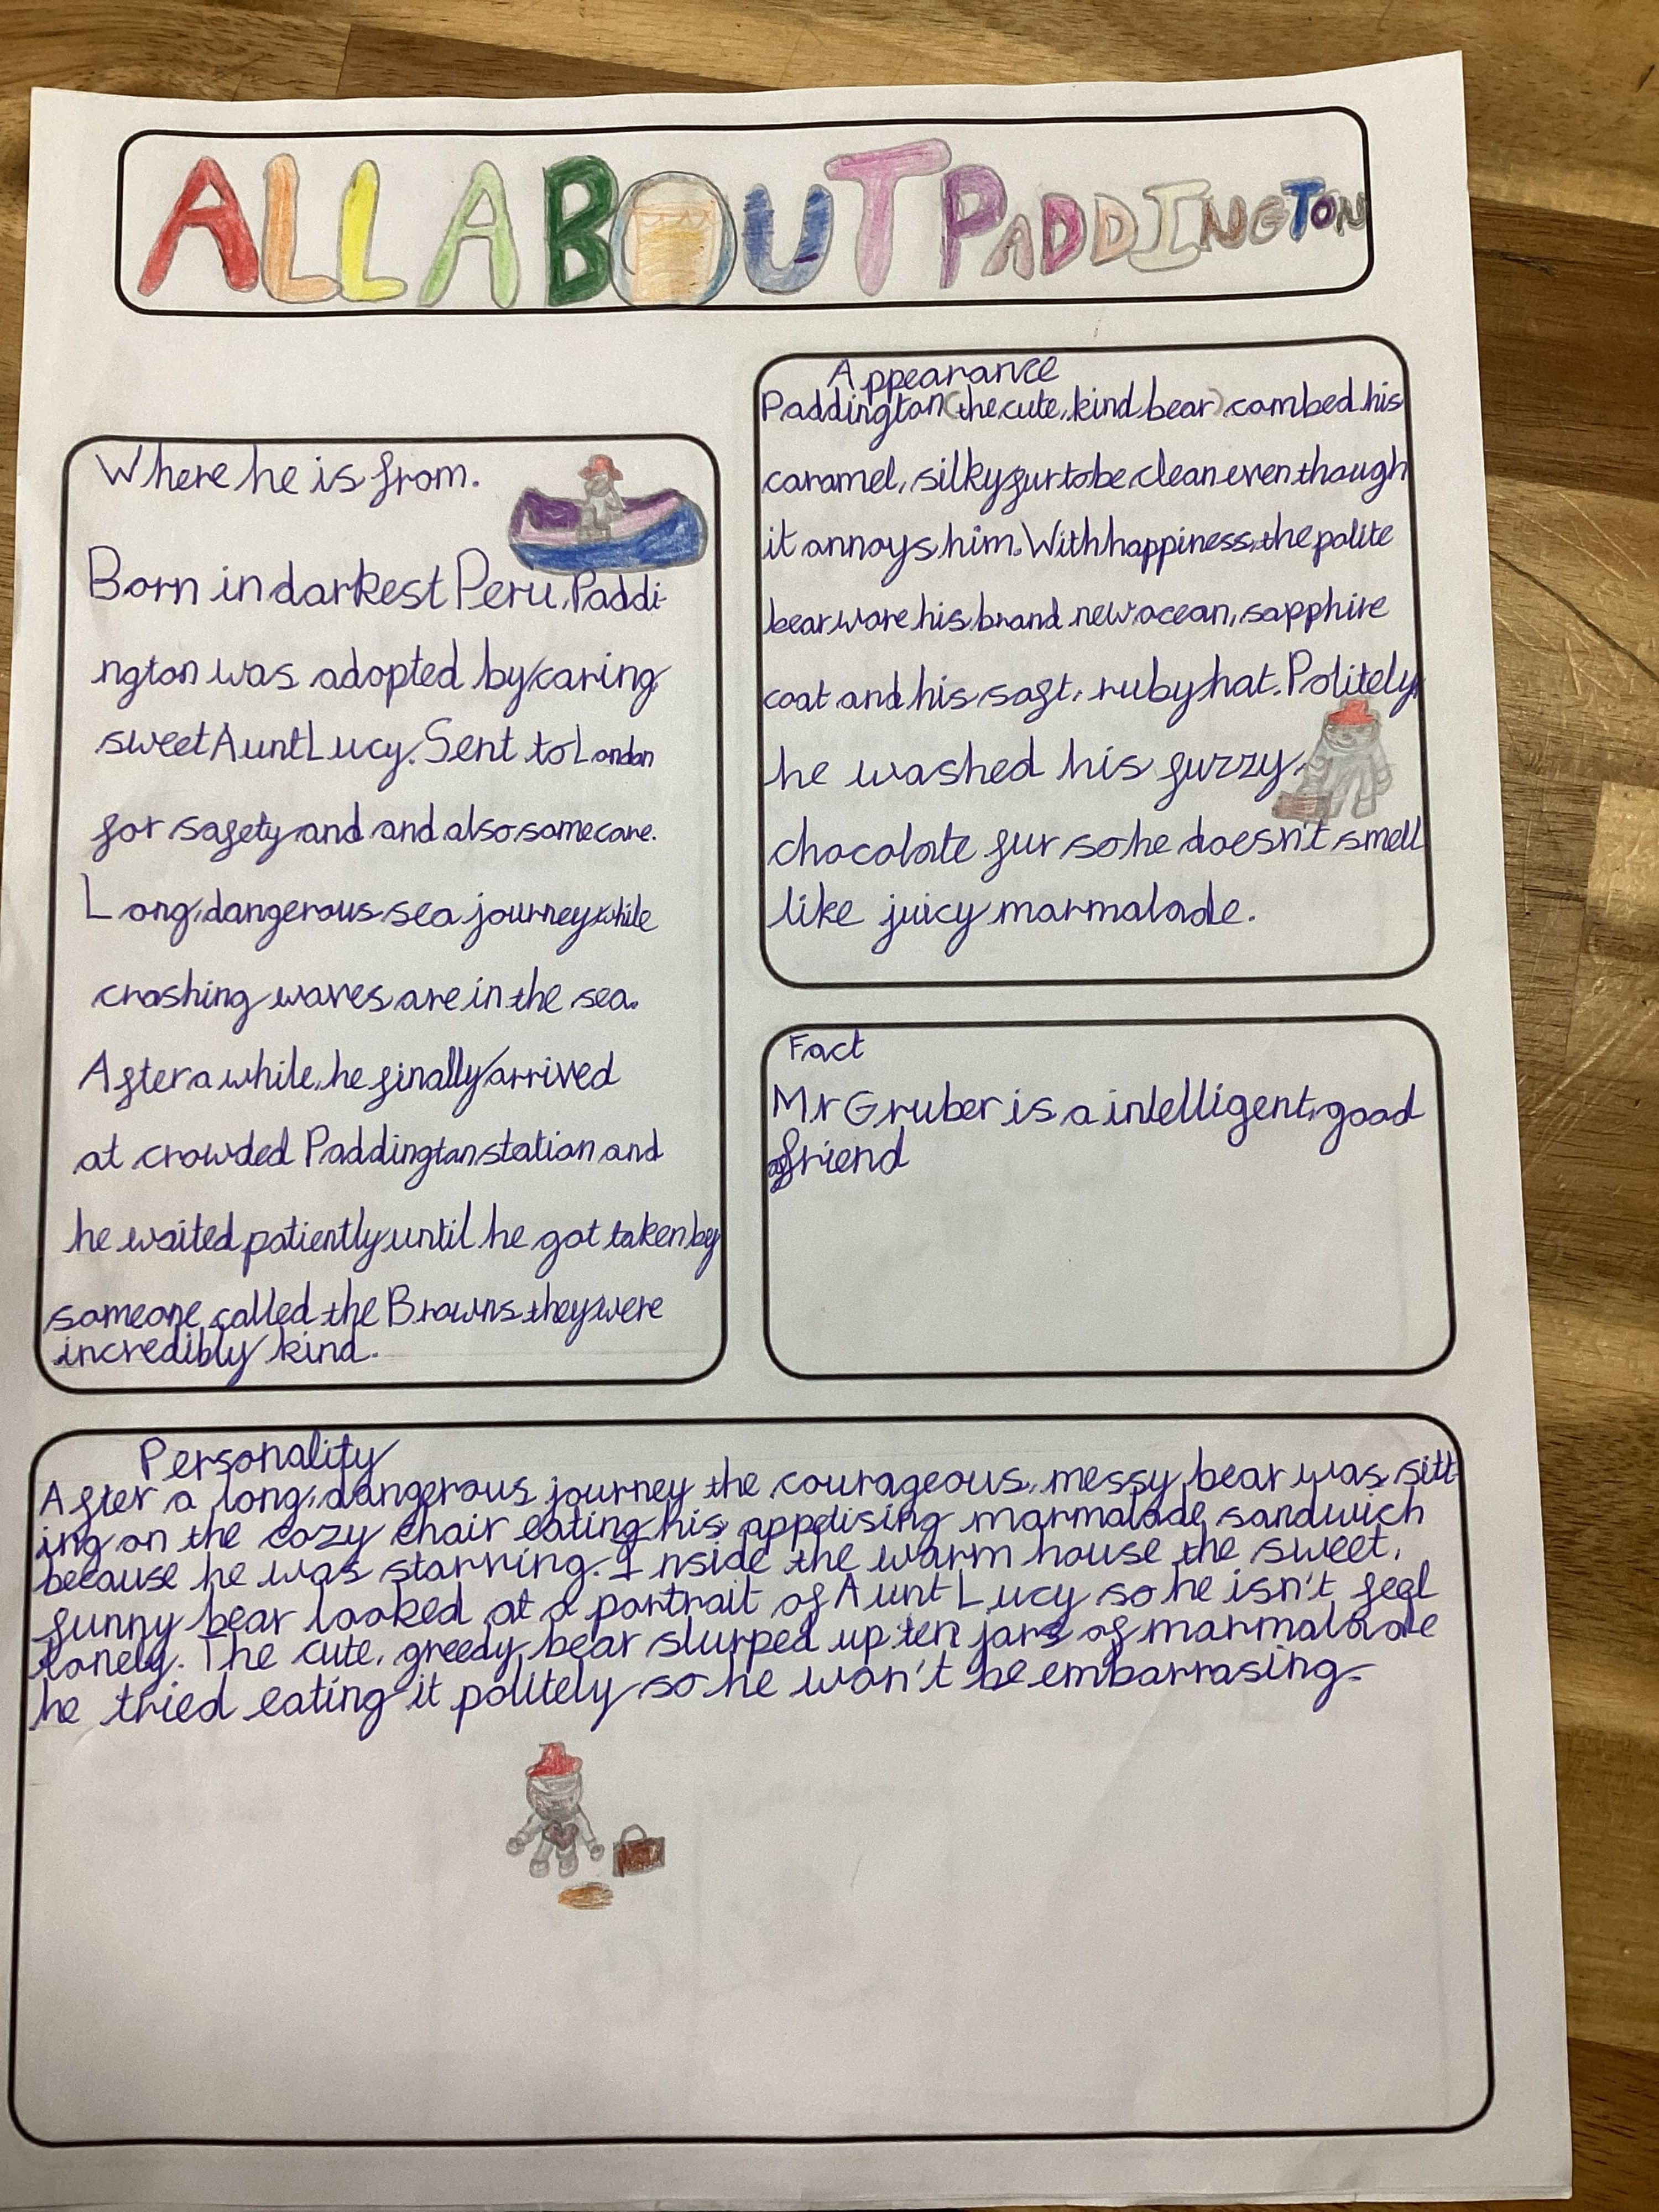 ALL ABOUT PADDINGTON
Where he is from.
Born in darkest Peru, Paddi-
ngton was adopted by caring,
sweet Aunt Lucy. Sent to London
for safety and and also some care.
Long, dangerous sea journey while
crashing waves are in the sea.
After a while, he finally arrived
at crowded Paddington station and
he waited patiently until he got taken by
someone called the Browns they were
incredibly kind.
Appearance
Paddington (the cute, kind bear) combed his
caramel, silky fur to be clean even though
it annoys him. With happiness, the polite
bear wore his brand new ocean, sapphire
coat and his soft, ruby hat. Politely,
he washed his fuzzy,
chocolate fur so he doesn't smell
like juicy marmalade.
Fact
Mr Gruber is a intelligent, good
friend
Personality
After a long, dangerous journey the courageous, messy bear was sitt-
ing on the cozy chair eating his appetising marmalade sandwich
because he was starving. Inside the warm house the sweet,
funny bear looked at a portrait of Aunt Lucy so he isn't feel
lonely. The cute, greedy bear slurped up ten jars of marmalade
he tried eating it politely so he won't be embarrasing.